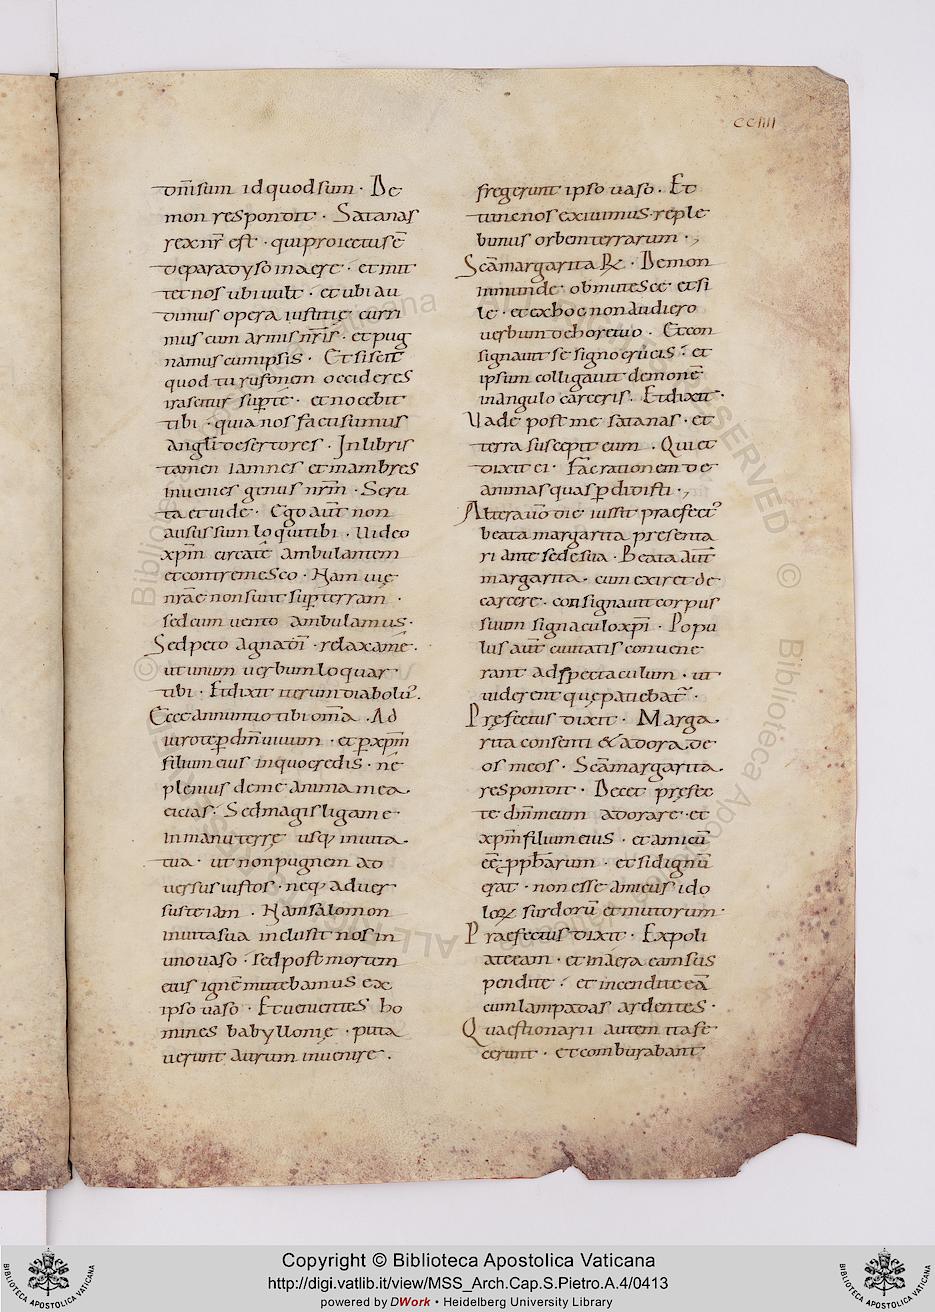 ccIIII
om̅sum id quod sum · De
mon respondit · Satanas
rex nr̅ est · qui proiectus e̅
de paradyso in aere · et mit
tet nos ubi uult · et ubi au
dimus opera iustitię curri
mus cum armis nr̅is · et pug
namus cum ipsis · Et si scit
quod tu rufonem occideres
irascitur sup te · et nocebit
tibi · quia nos facti sumus
angli desertores · In libris
tamen iamnes et mambres
inuenies genus nr̅m · Scru
ta et uide · Ego aut̅ non
ausus sum loqui tibi · Uideo
xp̅m circa te ambulantem
et contremesco · Nam uie
nr̅ae non sunt sup terram ·
sed cum uento ambulamus ·
Sed peto agna di̅ · relaxa me ·
ut unum uerbum loquar
tibi · Et dixit uerum diabolus.
Ecce annuntio tibi om̅a · Ad
iuro te p dm̅ uiuum · et p xp̅m
filium eius in quo credis · ne
plenius de me anima mea
eicias · Sed magis liga me
in manu terrę usq; in uita
tua · ut non pugnem ad
uersus iustos · neq; aduer
sus te iam · Nam salomon
in uita sua inclusit nos in
uno uaso · sed post mortem
eius igne̅ mittebamus ex
ipso uaso · Et uenientes ho
mines babyllonię · puta
uerunt aurum inuenire ·
fregerunt ipso uaso · Et
tunc nos exiuimus · reple
bimus orbem terrarum · ,
Sca̅ margarita R̸ · Demon
inmunde · obmutesce et si
le · et ex hoc non audiero
uerbum de hore tuo · Et con
signauit se signo crucis · et
ipsum colligauit demone̅
in angulo carceris · Et dixit ·
Uade post me satanas · et
terra suscepit eum · Qui et
dixit ei · Fac rationem de
animas quas pdidisti · ,
Altera u̅o die iussit praefectus
beata margarita presenta
ri ante sede sua · Beata aut̅
margarita · cum exiret de
carcere · consignauit corpus
suum signaculo xp̅i · Popu
lus aut̅ ciuitatis conuene
rant ad spectaculum · ut
uiderent quę patiebatur ·
Pręfectus dixit · Marga
rita consenti & adora de
os meos · Sca̅ margarita
respondit · Decet pręfec
te dm̅ meum adorare · et
xp̅m filum eius · et amicu̅
ee̅ pph̅arum · et si dignu̅
erat · non esse amicus ido
loꝝ surdoru̅ et mutorum ·
Praefectus dixit · Expoli
ate eam · et in aera eam sus
pendite · et incendite ea̅
cum lampadas ardentes ·
Quaestionarii autem ita fe
cerunt · et comburabant
Copyright © Biblioteca Apostolica Vaticana
http://digi.vatlib.it/view/MSS_Arch.Cap.S.Pietro.A.4/0413
powered by DWork • Heidelberg University Library